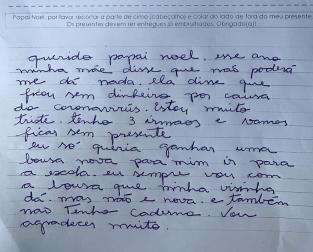 Papai Noel, por favor recortar a parte de cima (cabeçalho) e colar do lado de fora do meu presente
Os presentes devem ser entregues já embrulhados. Obrigado(a)!
querido papai noel, esse ano
minha mãe disse que não poderá
me da nada. ela disse que
ficou sem dinheiro por causa
do coronavirús. Estou muito
triste. tenho 3 irmaos e vamos
ficar sem presente
eu só queria ganhar uma
bousa nova para mim ir para
a escola. eu sempre vou com
a bousa que minha visinha
dá. mas não e nova. e também
não Tenho caderno. Vou
agradecer muito.